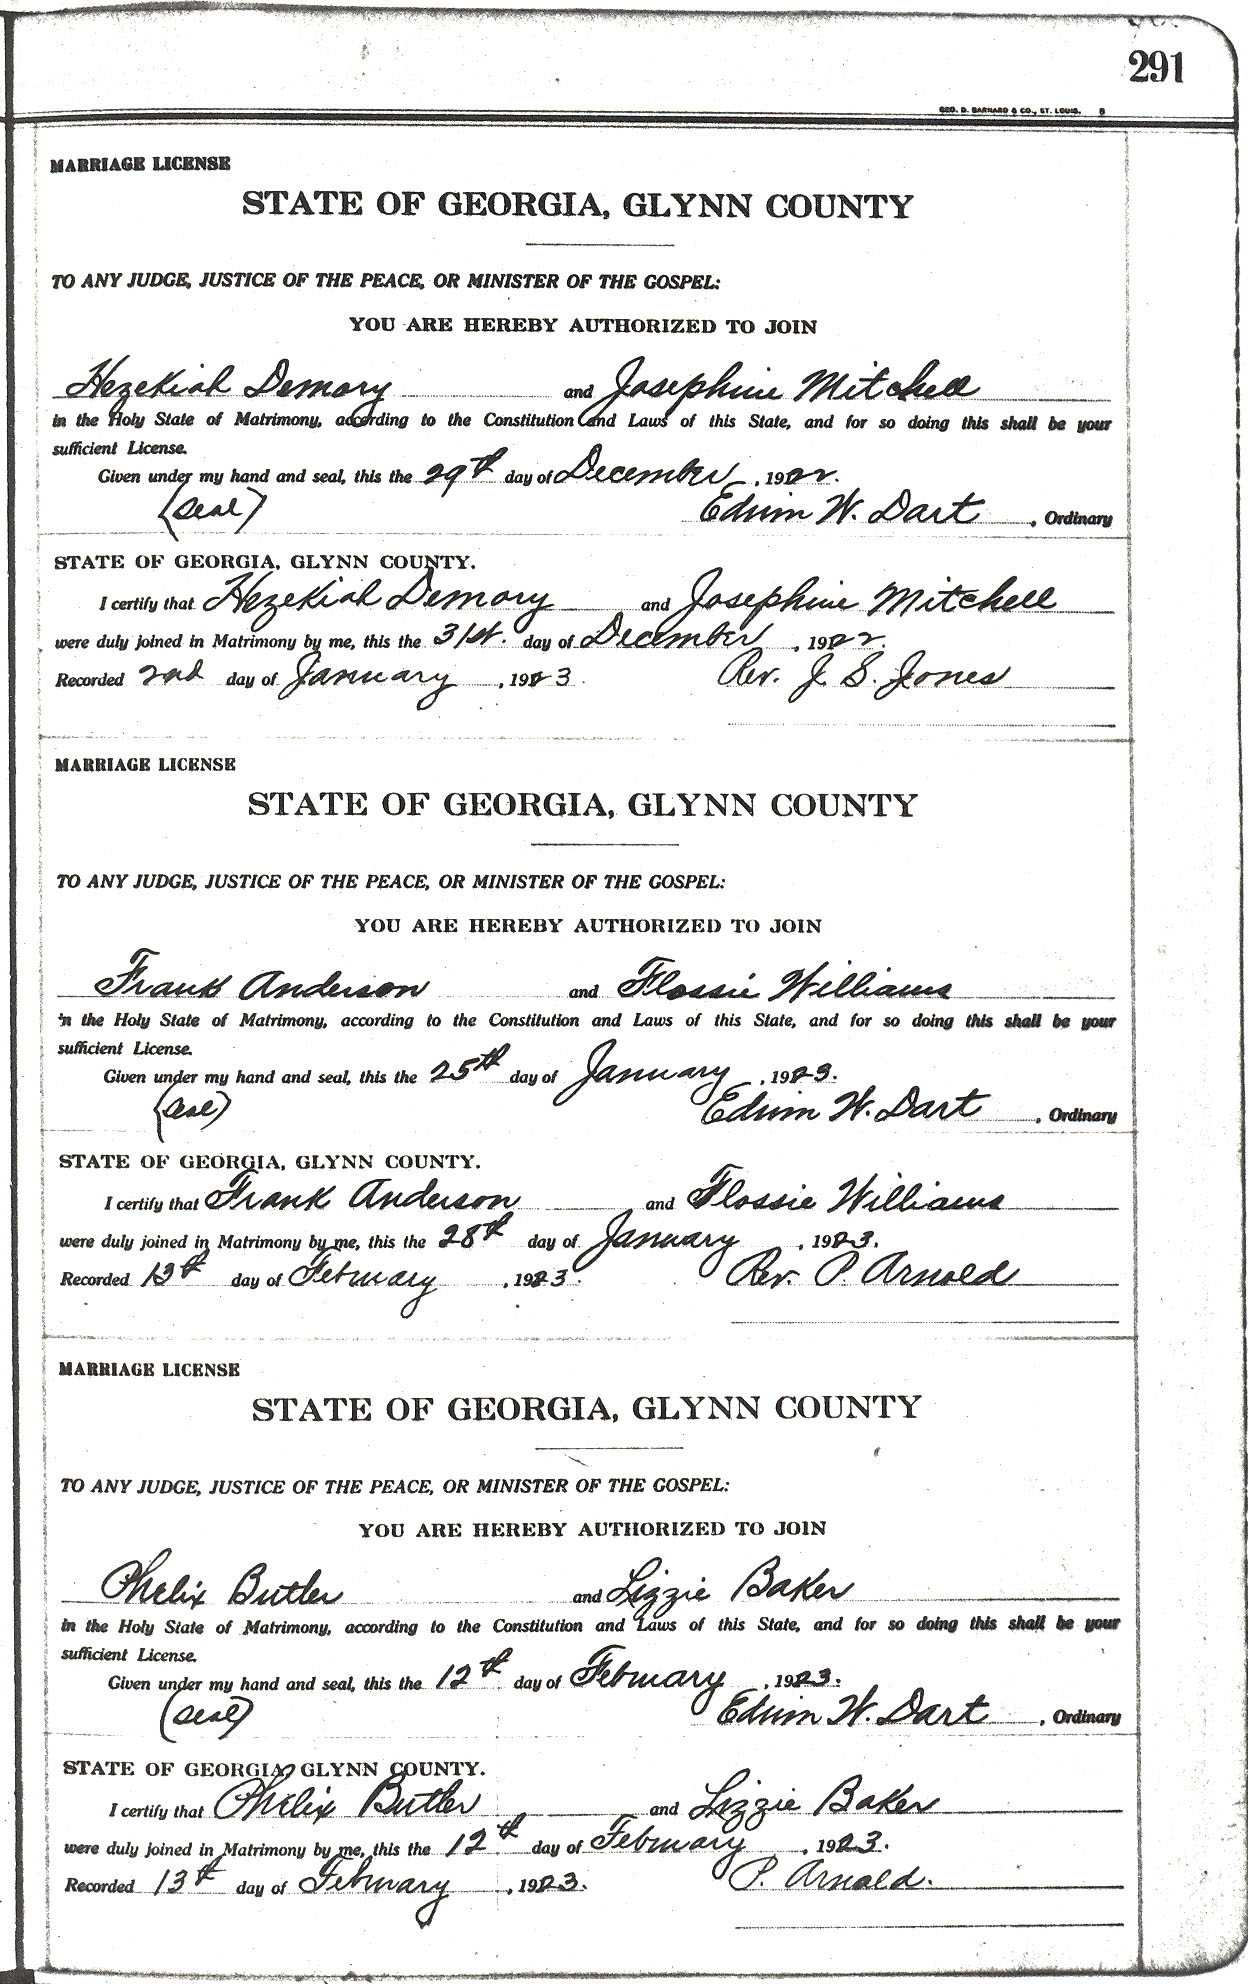 291
GEO. D. BARNARD & CO., ST. LOUIS.
MARRIAGE LICENSE
STATE OF GEORGIA, GLYNN COUNTY
TO ANY JUDGE, JUSTICE OF THE PEACE, OR MINISTER OF THE GOSPEL:
YOU ARE HEREBY AUTHORIZED TO JOIN
Hezekiah Demory and Josephine Mitchell
in the Holy State of Matrimony, according to the Constitution and Laws of this State, and for so doing this shall be your
sufficient License.
Given under my hand and seal, this the 29th day of December, 1922.
(seal) Edwin W. Dart, Ordinary
STATE OF GEORGIA, GLYNN COUNTY.
I certify that Hezekiah Demory and Josephine Mitchell
were duly joined in Matrimony by me, this the 31st. day of December, 1922.
Recorded 2nd day of January, 1923. Rev. J. S. Jones
MARRIAGE LICENSE
STATE OF GEORGIA, GLYNN COUNTY
TO ANY JUDGE, JUSTICE OF THE PEACE, OR MINISTER OF THE GOSPEL:
YOU ARE HEREBY AUTHORIZED TO JOIN
Frank Anderson and Flossie Williams
in the Holy State of Matrimony, according to the Constitution and Laws of this State, and for so doing this shall be your
sufficient License.
Given under my hand and seal, this the 25th day of January, 1923.
(seal) Edwin W. Dart, Ordinary
STATE OF GEORGIA, GLYNN COUNTY.
I certify that Frank Anderson and Flossie Williams
were duly joined in Matrimony by me, this the 28th day of January, 1923.
Recorded 13th day of February, 1923. Rev. P. Arnold
MARRIAGE LICENSE
STATE OF GEORGIA, GLYNN COUNTY
TO ANY JUDGE, JUSTICE OF THE PEACE, OR MINISTER OF THE GOSPEL:
YOU ARE HEREBY AUTHORIZED TO JOIN
Phelix Butler and Lizzie Baker
in the Holy State of Matrimony, according to the Constitution and Laws of this State, and for so doing this shall be your
sufficient License.
Given under my hand and seal, this the 12th day of February, 1923.
(seal) Edwin W. Dart, Ordinary
STATE OF GEORGIA, GLYNN COUNTY.
I certify that Phelix Butler and Lizzie Baker
were duly joined in Matrimony by me, this the 12th day of February, 1923.
Recorded 13th day of February, 1923. P. Arnold.